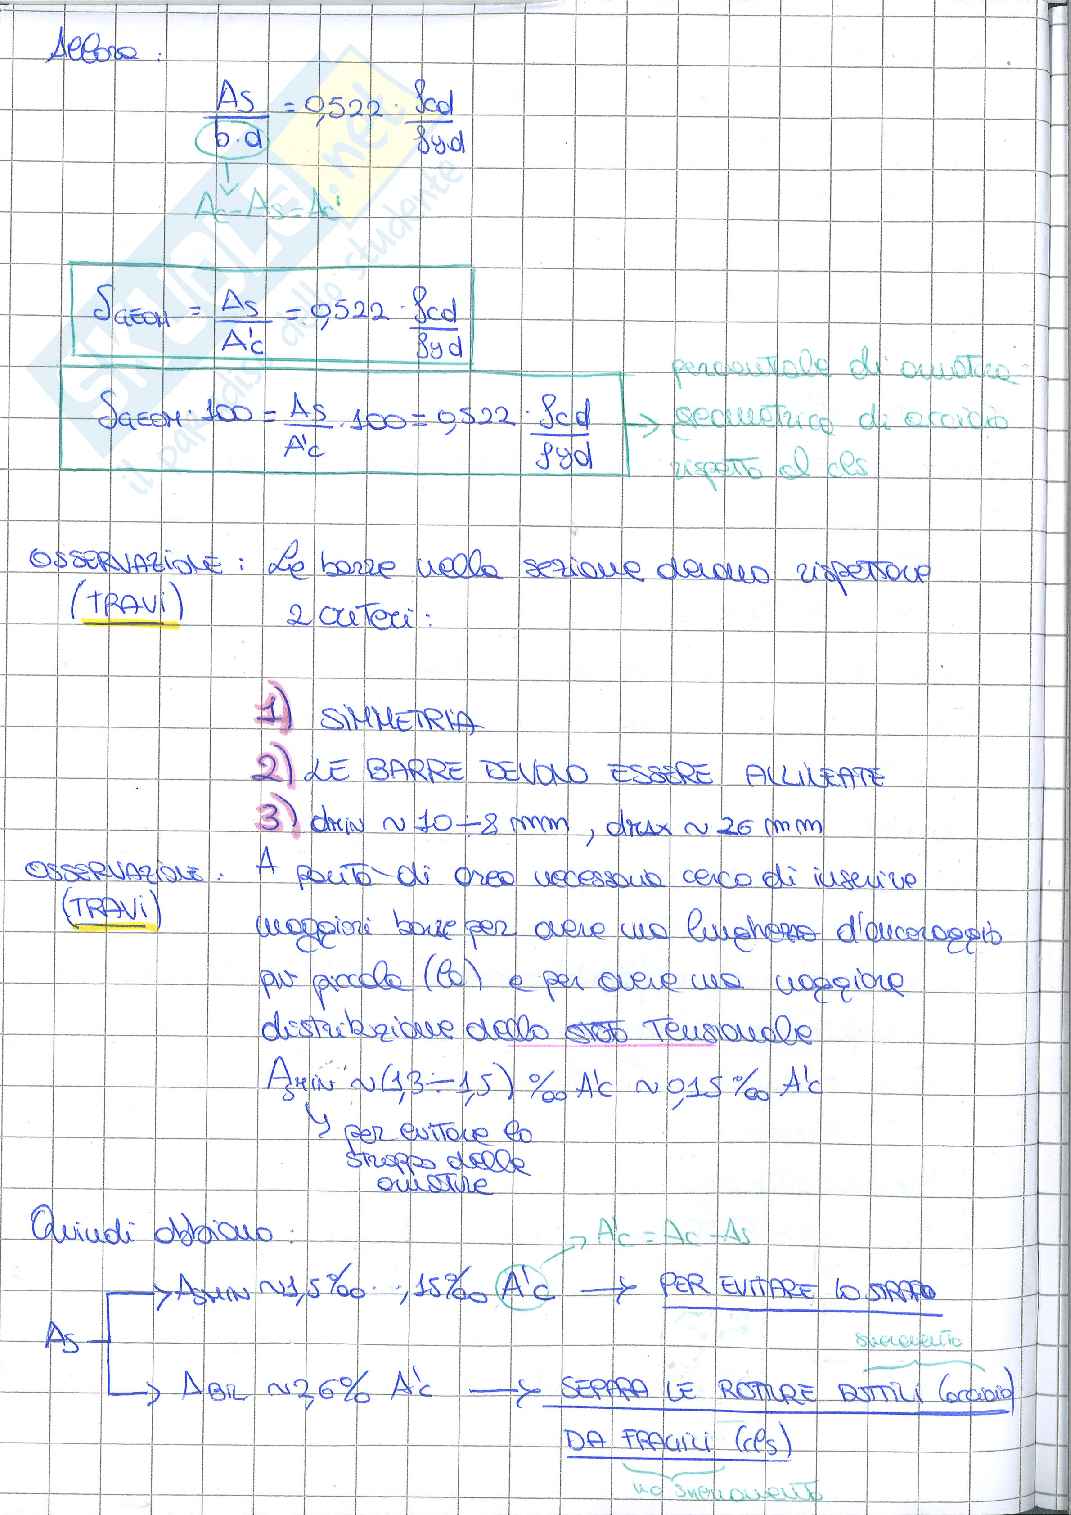 Allora:
As / b·d = 0,522 · fcd / fyd
Ac - As = Ac'
δGEOM = As / A'c = 0,522 · fcd / fyd
δGEOM · 100 = As / A'c · 100 = 0,522 · fcd / fyd → percentuale di armatura
geometrica di acciaio
rispetto al cls
OSSERVAZIONE: Le barre nella sezione devono rispettare
(TRAVI) 2 criteri:
1) SIMMETRIA
2) LE BARRE DEVONO ESSERE ALLINEATE
3) dMIN ~ 10÷8 mm, dMAX ~ 26 mm
OSSERVAZIONE: A parità di area necessaria cerco di inserire
(TRAVI) maggiori barre per avere una lunghezza d'ancoraggio
più piccola (lo) e per avere una maggiore
distribuzione dello stato Tensionale
AsMIN ~ (1,3÷1,5) ‰ A'c ~ 0,15 ‰ A'c
↳ per evitare lo
strappo delle
armature
Quindi abbiamo:
A'c = Ac - As
AsMIN ~ 1,5‰ A'c → PER EVITARE LO STRAPPO
As
snervamento
ABIL ~ 2,6% A'c → SEPARA LE ROTTURE DUTTILI (acciaio)
DA FRAGILI (cls)
no snervamento
SKUOLA.net
il paradiso dello studente